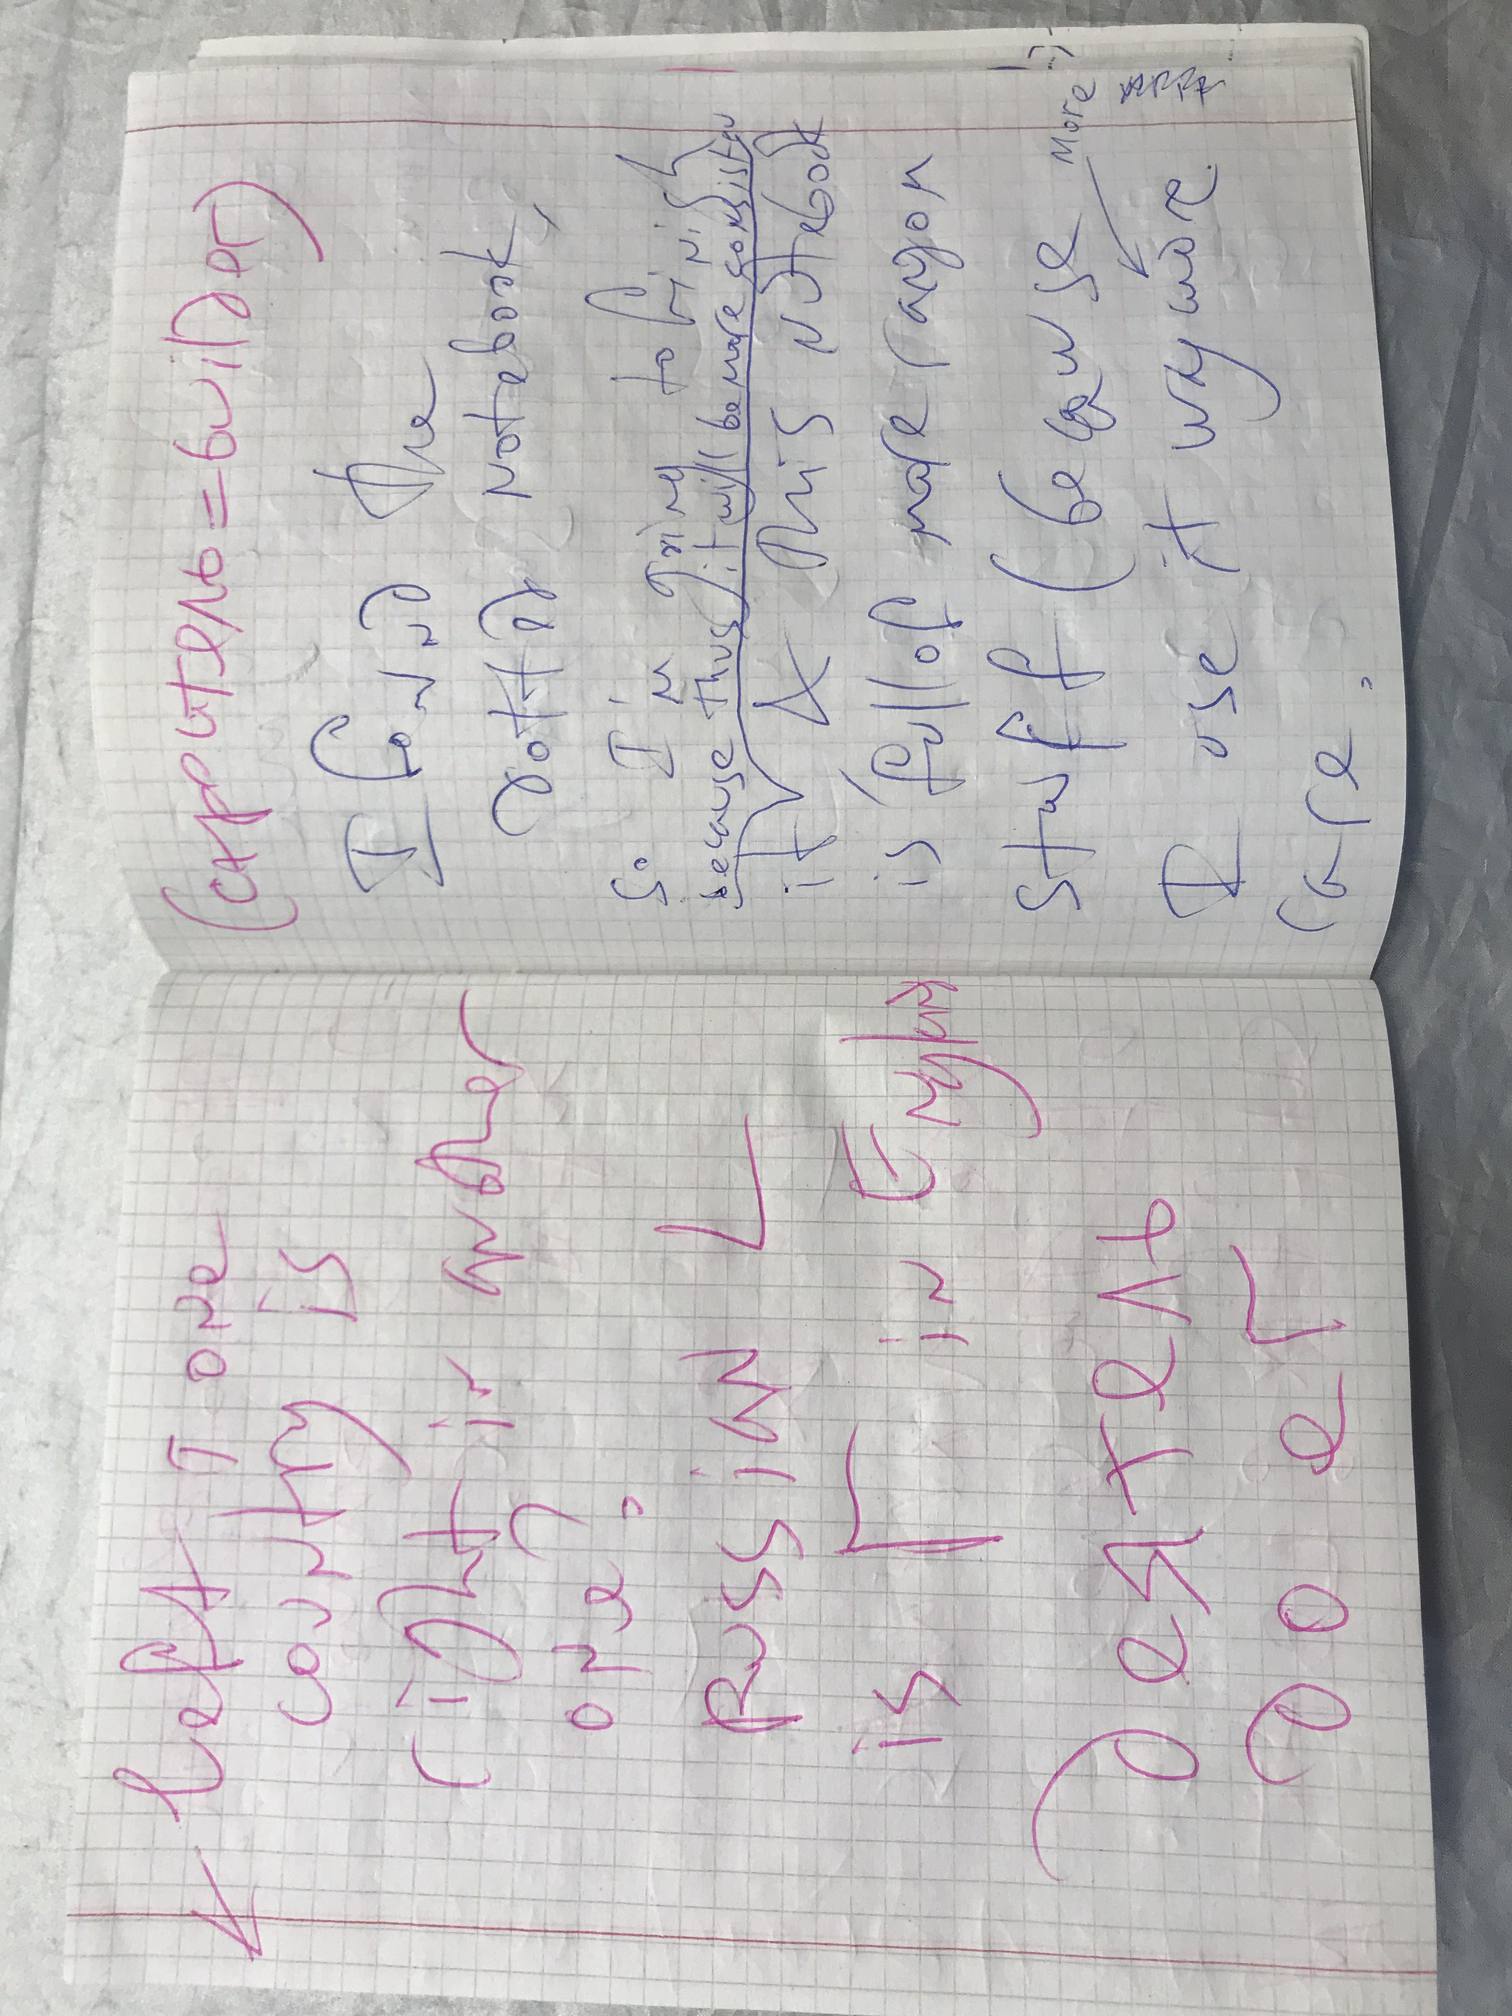 & left T one
country is
right in another
one.
Russian L
is Г in English
деятель
doer
(строитель = builder)
I found the
dotted notebook,
So I'm trying to finish
because thus, it will be more consisten
it & this notebook
is full of more rangon
stuff (because More :)
I use it way more
rare.